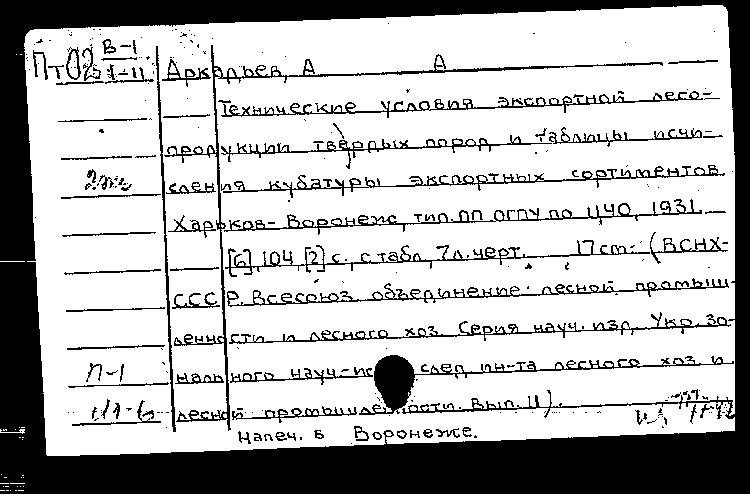 Пт02 В-1
Аркадьев, А А
Технические условия экспортной лесо-
продукции твёрдых пород и таблицы исчи-
2экз
сления кубатуры экспортных сортиментов
Харьков-Воронеж, тип. ПП ОГПУ по ЦЧО, 1931
[6], 104, [2] с., с табл., 7 л. черт. 17 cm. (ВСНХ-
СССР. Всесоюз. объединение лесной промыш-
ленности и лесного хоз. Серия науч. изд. Укр. зо-
П-1 нального науч-ис след. ин-та лесного хоз и
лесной промышленности. Вып. II).
Напеч. в Воронеже.